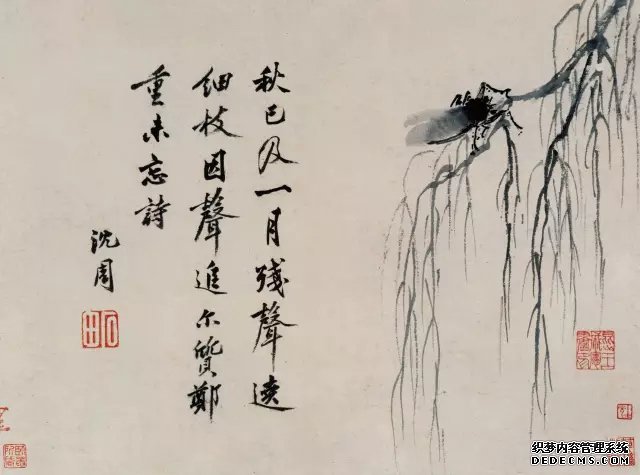 秋已及一月殘聲遶
細枝因聲追尔質鄭
重未忘詩
沈周
石田
织梦内容管理系统
DEDECMS.COM